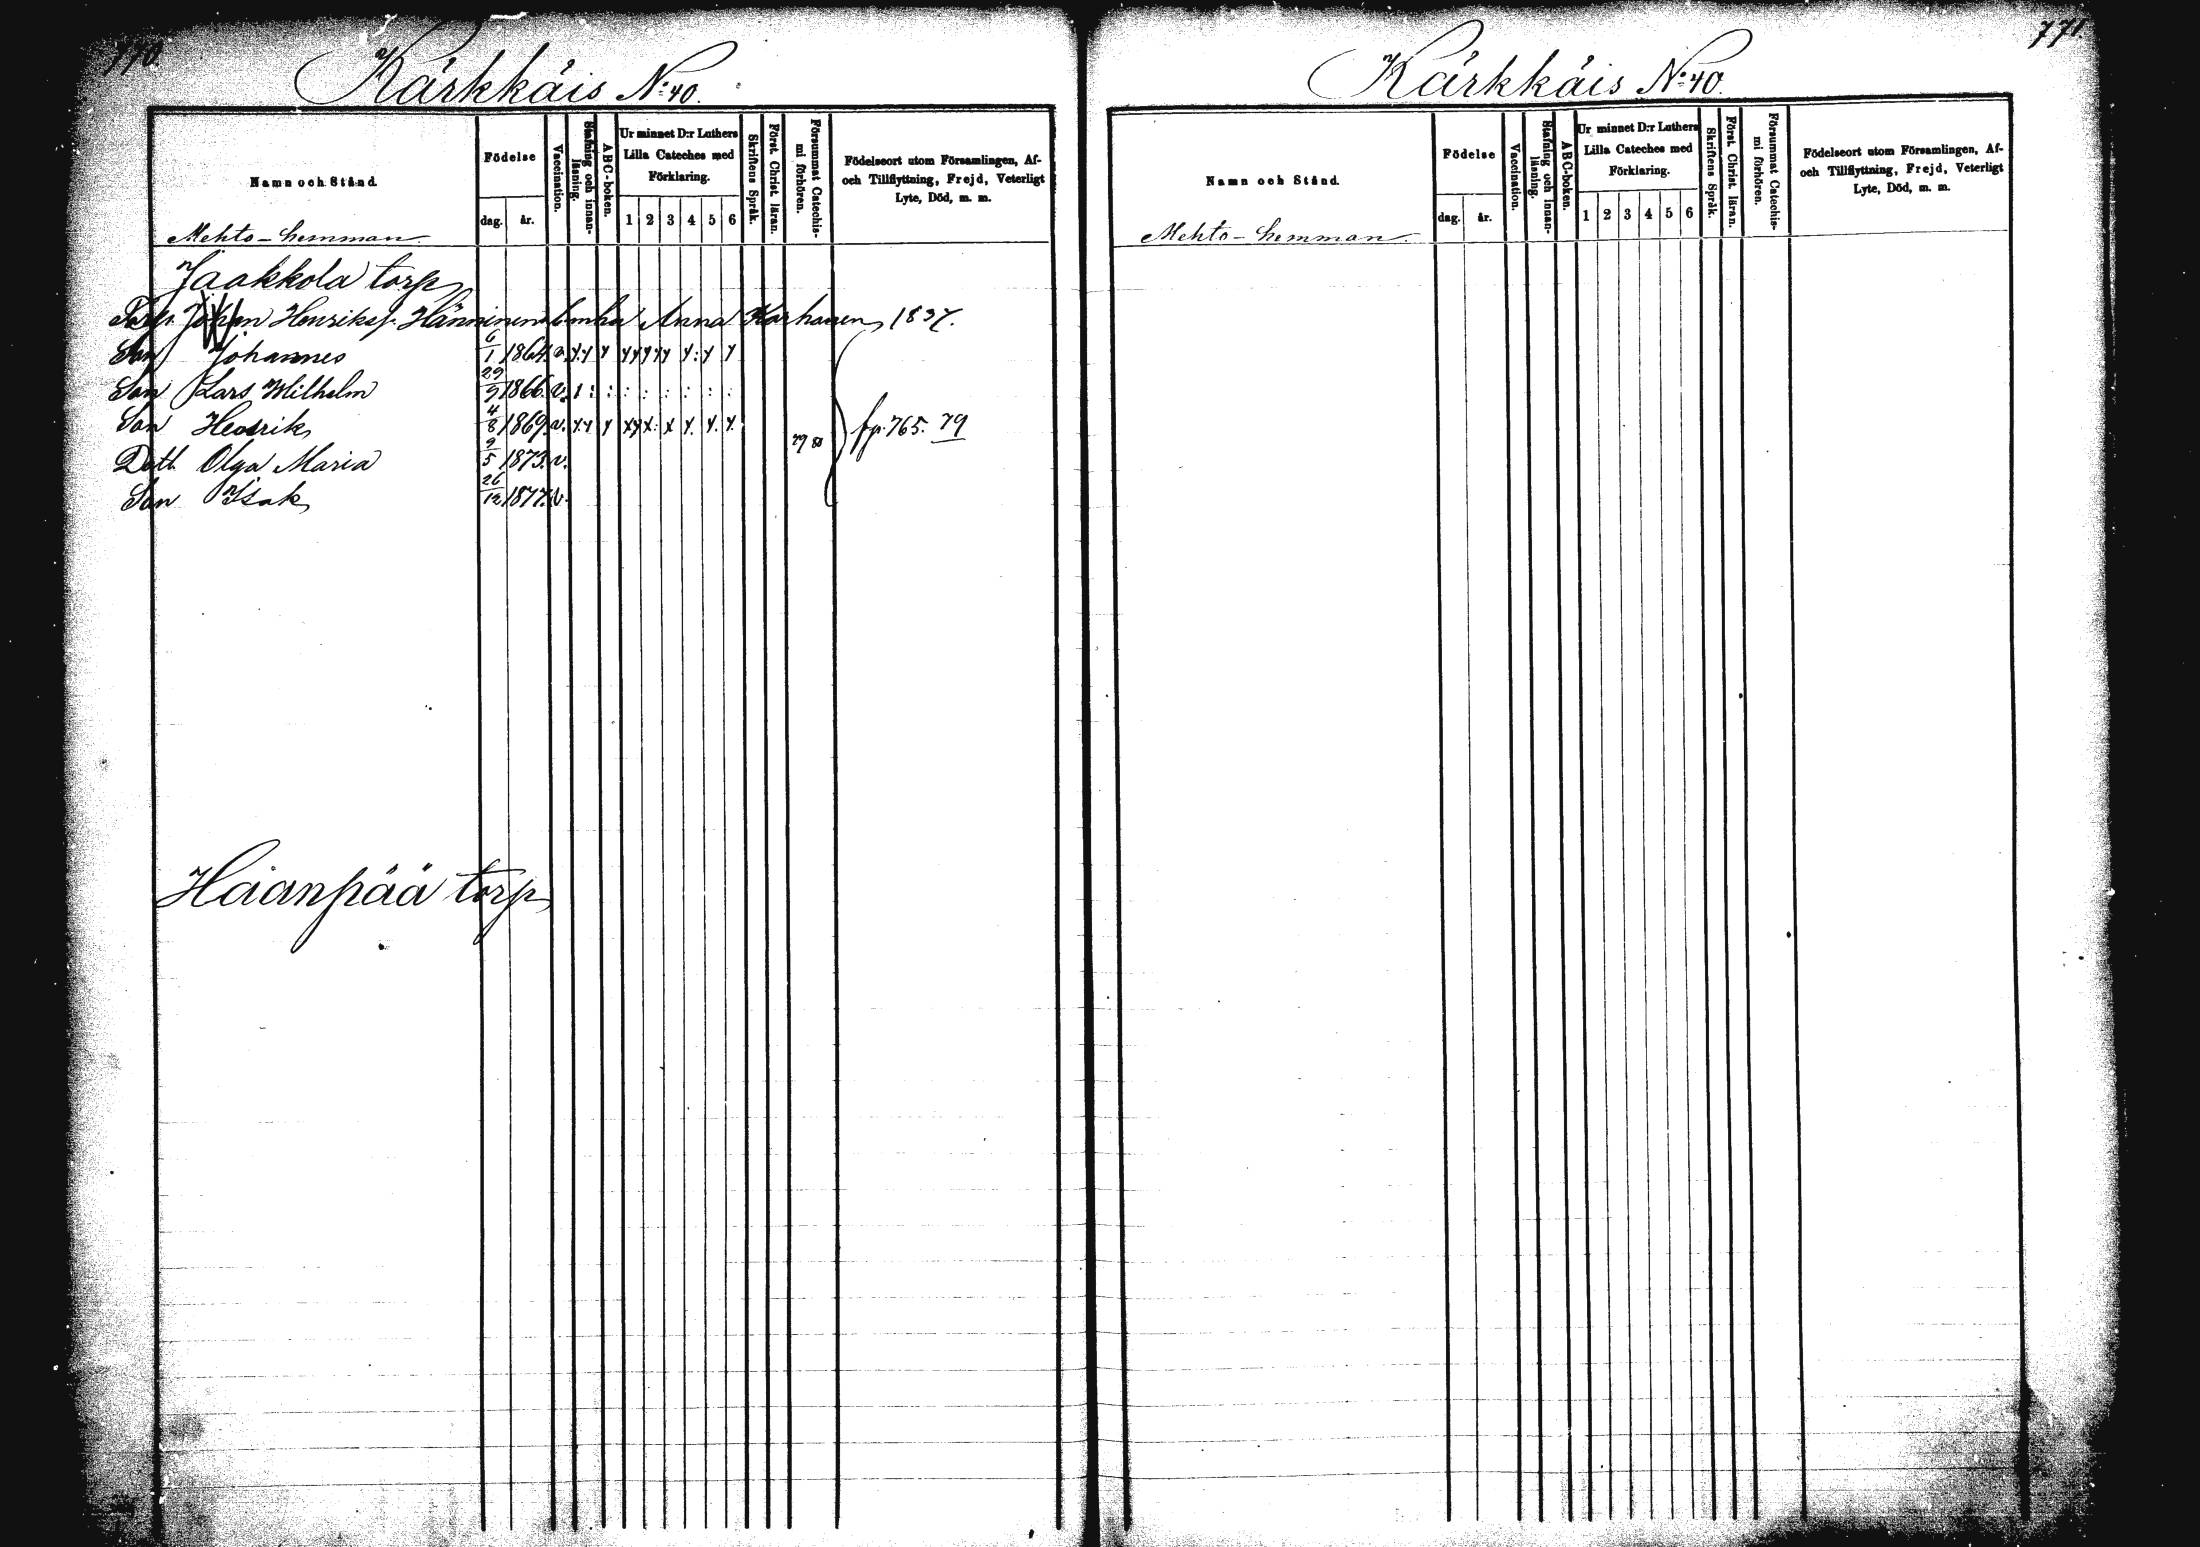 770.
Kärkkäis No: 40.
Namn och Stånd.
Födelse
dag. år.
Vaccination.
Stafning och innan-läsning.
ABC-boken.
Ur minnet D:r Luthers
Lilla Cateches med
Förklaring.
1 2 3 4 5 6
Skriftens Språk.
Först. Christ. läran.
Försummat Catechis-
mi förhören.
Födelseort utom Församlingen, Af-
och Tillflyttning, Frejd, Veterligt
Lyte, Död, m. m.
Mehto-hemman.
Jaakkola torp
Torp. Johan Henrikss. Hänninens Enka Anna Karhonen 1837.
Son Johannes 6/1 1864. v.
Son Lars Wilhelm 29/9 1866. v.
Son Henrik 4/8 1869. v.
Dott. Olga Maria 9/5 1873. v.
Son Isak 26/12 1877. v.
79 80
fp. 765. 79
Häänpää torp
771.
Kärkkäis No: 40.
Namn och Stånd.
Födelse
dag. år.
Vaccination.
Stafning och innan-läsning.
ABC-boken.
Ur minnet D:r Luthers
Lilla Cateches med
Förklaring.
1 2 3 4 5 6
Skriftens Språk.
Först. Christ. läran.
Försummat Catechis-
mi förhören.
Födelseort utom Församlingen, Af-
och Tillflyttning, Frejd, Veterligt
Lyte, Död, m. m.
Mehto-hemman.